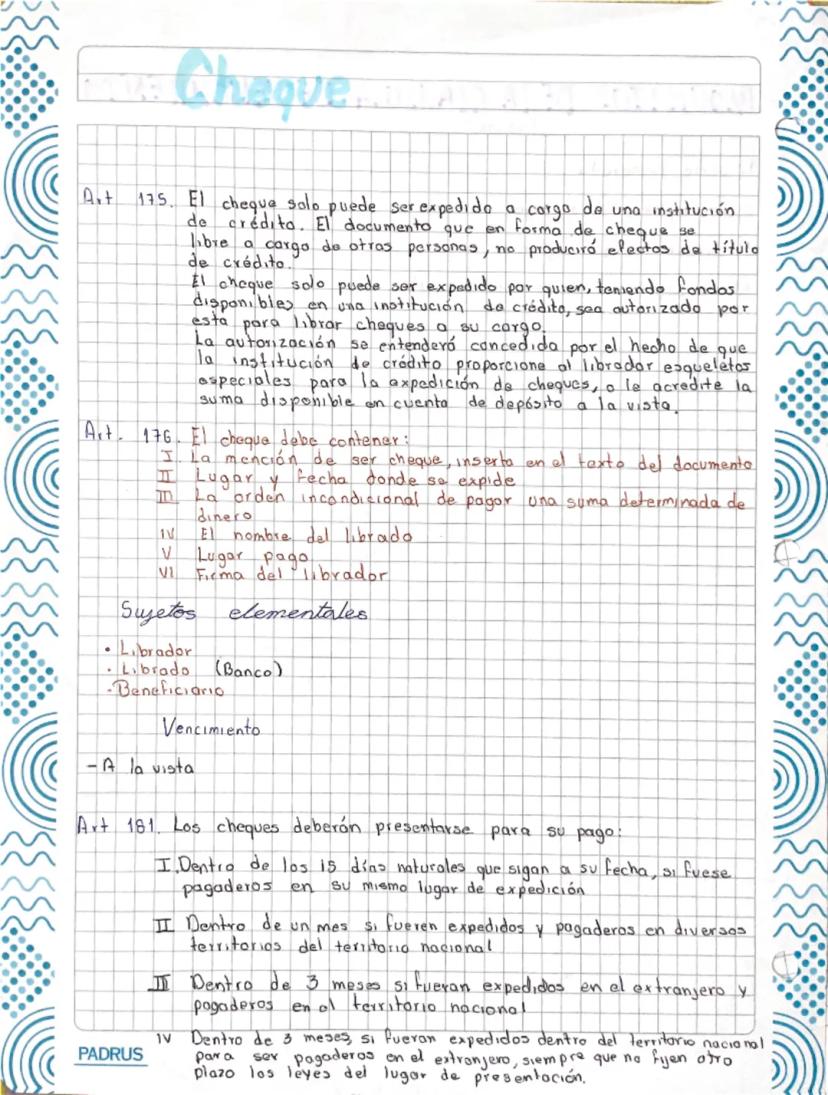 Cheque
Art 175. El cheque solo puede ser expedido a cargo de una institución
de crédito. El documento que en forma de cheque se
libre a cargo de otras personas, no producirá efectos de título
de crédito.
El cheque solo puede ser expedido por quien, teniendo fondos
disponibles en una institución de crédito, sea autorizado por
esta para librar cheques a su cargo.
La autorización se entenderá concedida por el hecho de que
la institución de crédito proporcione al librador esqueletos
especiales para la expedición de cheques, o le acredite la
suma disponible en cuenta de depósito a la vista.
Art. 176. El cheque debe contener:
I La mención de ser cheque, inserta en el texto del documento
II Lugar y fecha donde se expide
III La orden incondicional de pagar una suma determinada de
dinero
IV El nombre del librado
V Lugar pago
VI Firma del librador
Sujetos elementales
• Librador
• Librado (Banco)
- Beneficiario
Vencimiento
- A la vista
Art 181. Los cheques deberán presentarse para su pago:
I. Dentro de los 15 días naturales que sigan a su fecha, si fuese
pagaderos en su mismo lugar de expedición
II Dentro de un mes si fueren expedidos y pagaderos en diversos
territorios del territorio nacional
III Dentro de 3 meses si fueran expedidos en el extranjero y
pagaderos en el territorio nacional
IV Dentro de 3 meses, si fueran expedidos dentro del territorio nacional
para ser pagaderos en el extranjero, siempre que no fijen otro
plazo las leyes del lugar de presentación.
PADRUS